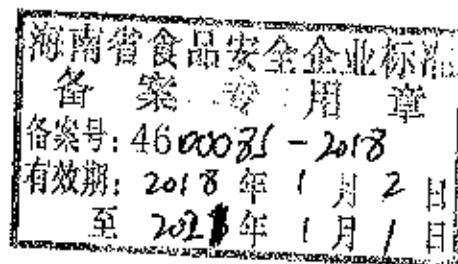 海南省食品安全企业标准
备案专用章
备案号：460008S－2018
有效期：2018年1月2日
至2021年1月1日